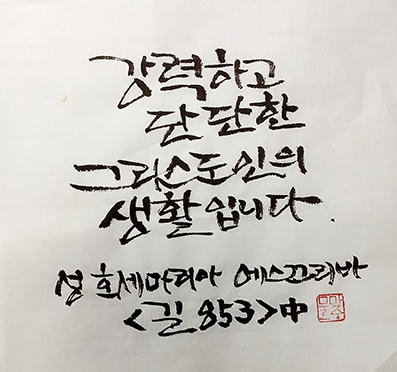 강력하고
단단한
그리스도인의
생활입니다.
성 호세마리아 에스끄리바
<길 853>中